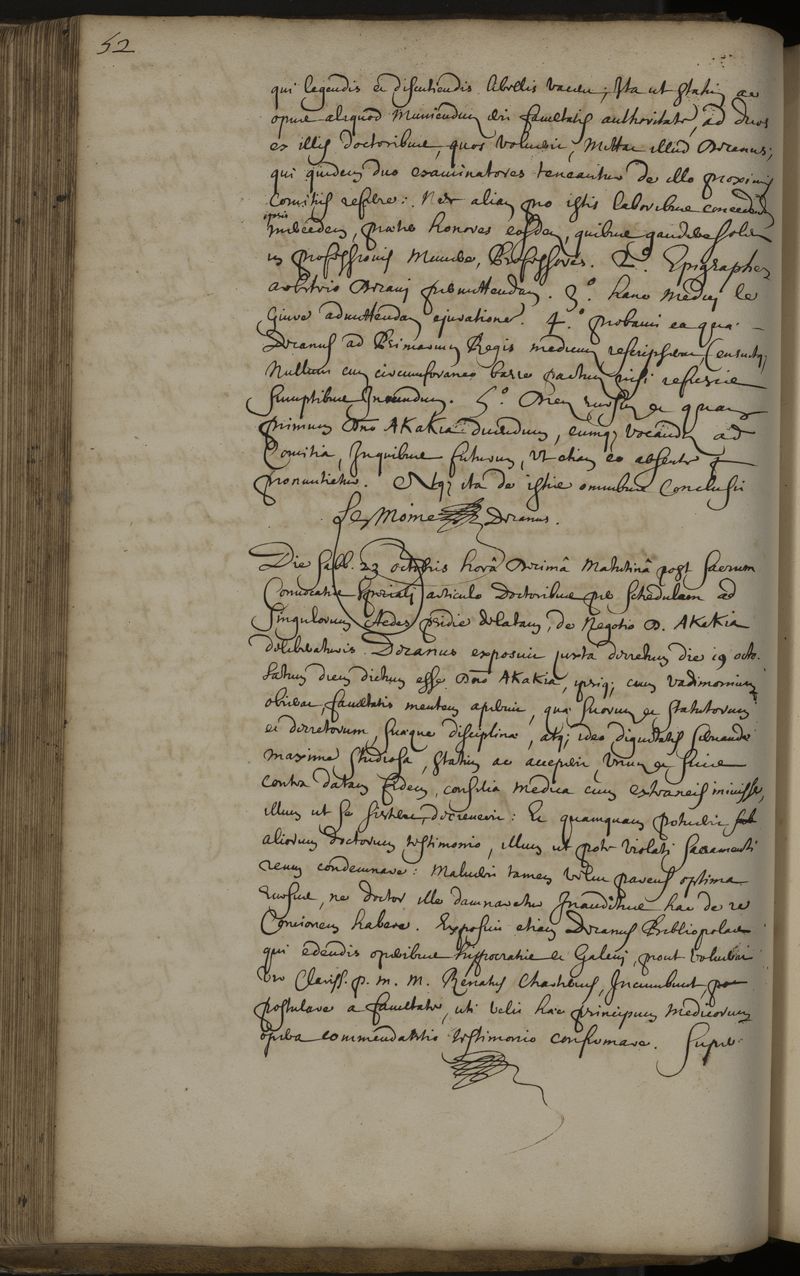 52
qui legendis et discutiendis libellis vacent; Ita ut statim ac
opus aliquod muniendum erit facultatis authoritate, ad duos
ex illis doctoribus, quos voluerit, mittat illud Decanus;
qui quidem duo examinatores teneantur de illo proximis
Comitiis referre: Nec aliam pro istis laboribus concedendam
ipsis mercedem, praeter honores eosdem, quibus gaudere solent
in professionis munere, Professores. 2.° Epigraphen
arbitrio Decani permittendam. 3.° hanc medici le
Givre admittendam ejurationem. 4.° probavit ea quae
Decanus ad Primarium Regis medicum rescripserat, Censuitq;
Nullum cum circumforaneo barry pactum nisi refusis
sumptibus Ineundum. 5.° Diem rursum et quam
primum Dno AKaKia dicendum, eumq; vocandum ad
Comitia, In quibus futurum, ut etiam eo absente
pronuntietur. Atq; ita de istis omnibus Conclusit
Le Moine Decanus.
Die sabb. 23 octobris horâ Decimâ Matutinâ post sacrum
Convocatis speciali articulo Doctoribus per schedulam ad
singulorum Aedes pridie delatam, de Negotio D. AKaKia
deliberaturis. Decanus exposuit juxta decretum die 19 octo.
latum diem dictum esse Dno AKaKia, ipsiq; cum vadimonium
obiret, facultatis mentem aperuit, quae suorum et statutorum
et decretorum, suaeque disciplinae, atq; ideo dignitatis servandae
maxime studiosa, statim ac accepit, unum ex suis
contra datam fidem, consilia medica cum extraneis iniisse,
illum ut se sisteret, decreverit: Et quamquam potuerit
aliorum doctorum testimonio, illum ut pote violati sacramenti
reum condemnare: Maluerit tamen velut parens optima
rursus, ne doctor ille damnaretur Inauditus hac de re
Concionem habere. Exposuit etiam Decanus Bibliopolae
qui edendis operibus Hippocratis et Galeni, prout voluerat
vir Clariss. p. m. M. Renatus Charterius, Incumbunt
postulare a facultate, uti velit haec principum medicorum
opera commendatitio testimonio confirmare. Super